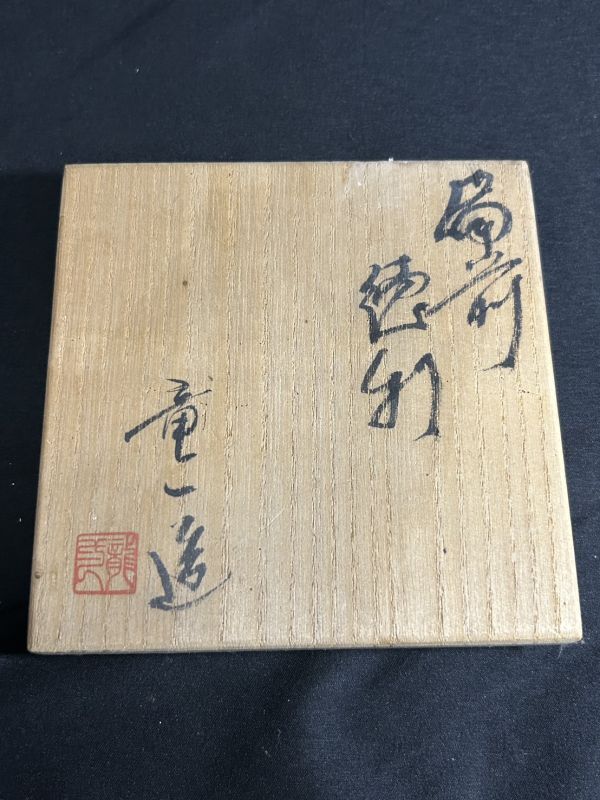 備前
徳利
竜一造